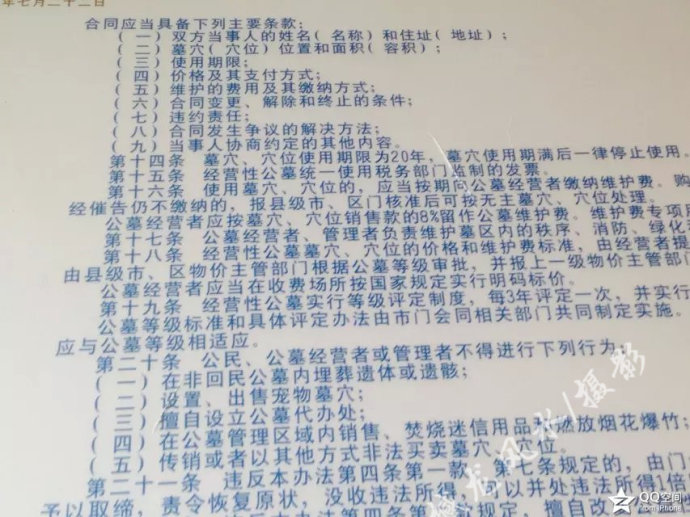 年七月二十二日
合同应当具备下列主要条款：
（一）双方当事人的姓名（名称）和住址（地址）；
（二）墓穴（穴位）位置和面积（容积）；
（三）使用期限；
（四）价格及其支付方式；
（五）维护的费用及其缴纳方式；
（六）合同变更、解除和终止的条件；
（七）违约责任；
（八）合同发生争议的解决方法；
（九）当事人协商约定的其他内容。
第十四条 墓穴、穴位使用期限为20年，墓穴使用期满后一律停止使用。
第十五条 经营性公墓统一使用税务部门监制的发票。
第十六条 使用墓穴、穴位的，应当按期向公墓经营者缴纳维护费。购
经催告仍不缴纳的，报县级市、区门核准后可按无主墓穴、穴位处理。
公墓经营者应按墓穴、穴位销售款的8%留作公墓维护费。维护费专项
第十七条 公墓经营者、管理者负责维护墓区内的秩序、消防、绿化
第十八条 经营性公墓墓穴、穴位的价格和维护费标准，由经营者提
由县级市、区物价主管部门根据公墓等级审批，并报上一级物价主管部门
公墓经营者应当在收费场所按国家规定实行明码标价。
第十九条 经营性公墓实行等级评定制度，每3年评定一次，并实行
公墓等级标准和具体评定办法由市门会同相关部门共同制定实施。
应与公墓等级相适应。
第二十条 公民、公墓经营者或管理者不得进行下列行为：
（一）在非回民公墓内埋葬遗体或遗骸；
（二）设置、出售宠物墓穴；
（三）擅自设立公墓代办处；
（四）在公墓管理区域内销售、焚烧迷信用品和燃放烟花爆竹；
（五）传销或者以其他方式非法买卖墓穴、穴位。
第二十一条 违反本办法第四条第一款、第七条规定的，由门
予以取缔，责令恢复原状，没收违法所得，可以并处违法所得1倍
法第四条第 规定，擅自改
龙风水/摄影
QQ空间
from iPhone